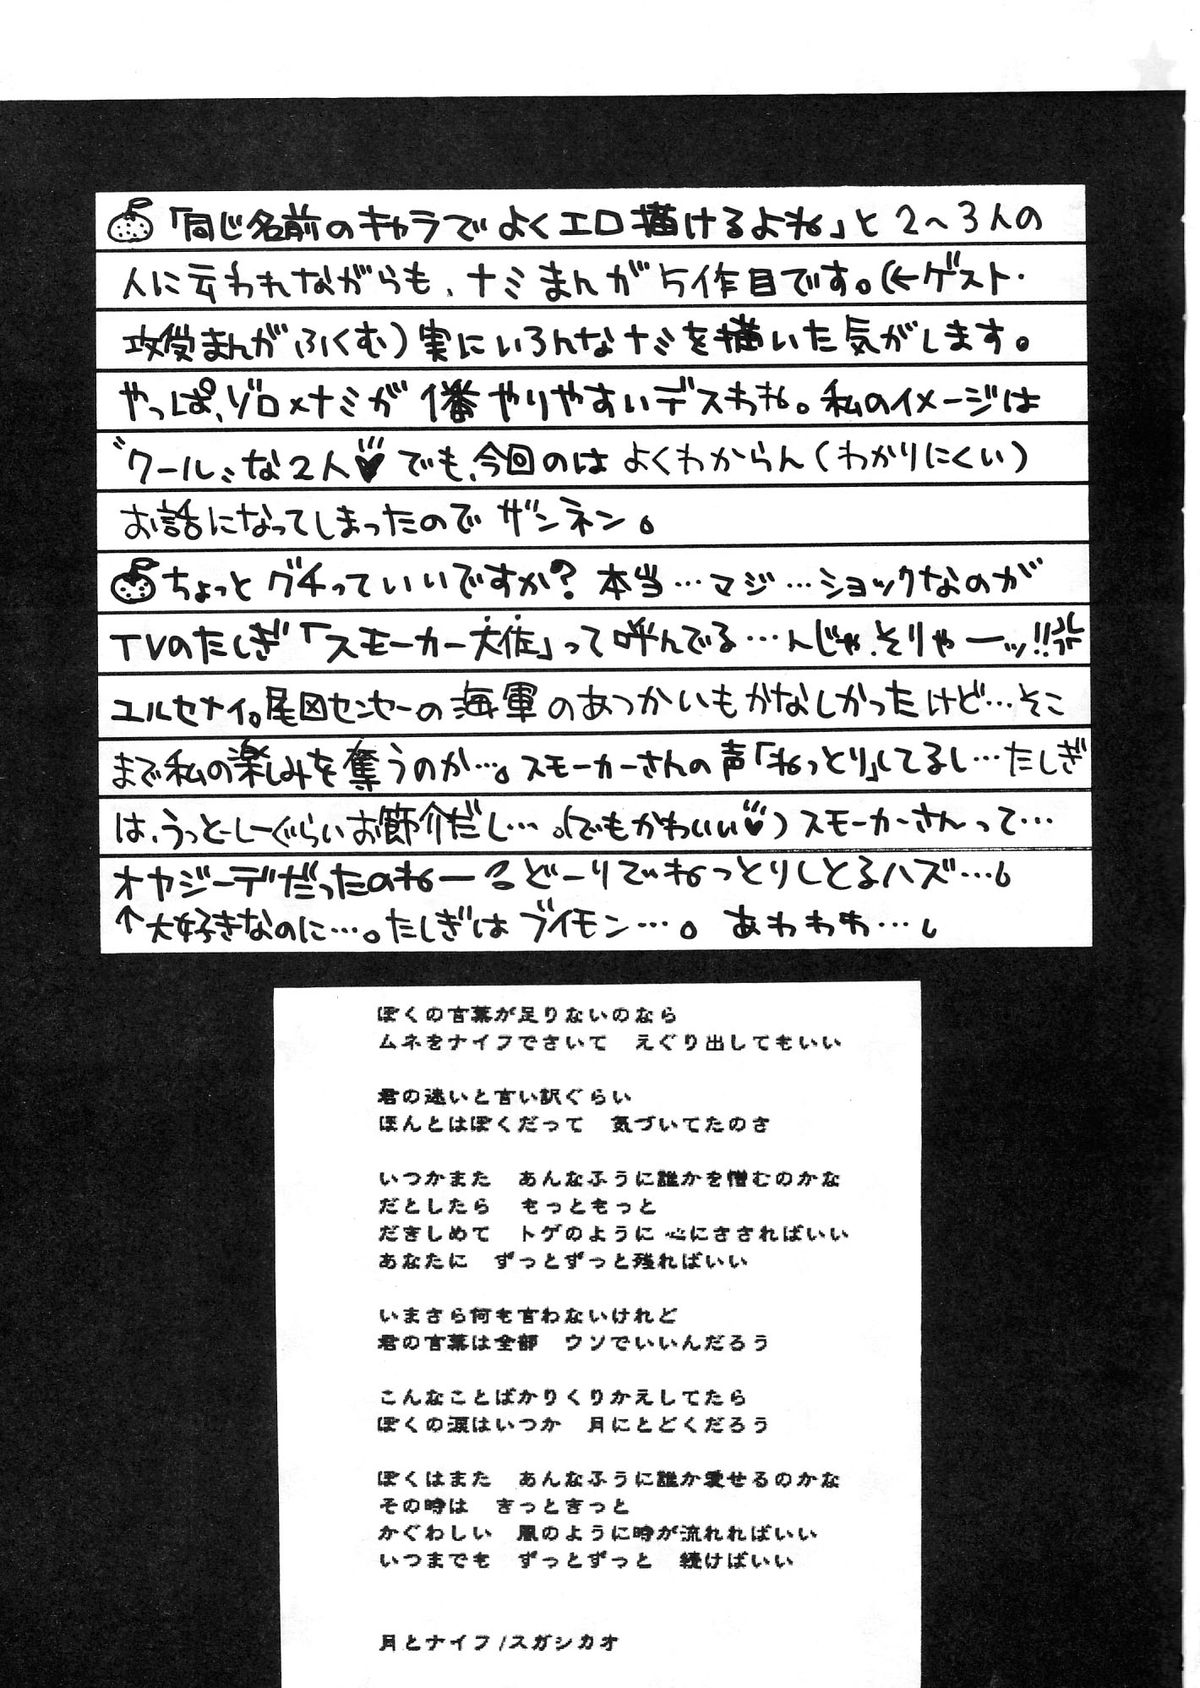 「同じ名前のキャラでよくエロ描けるよね」と2〜3人の
人に云われながらも、ナミまんが5作目です。(←ゲスト・
攻受まんがふくむ)実にいろんなナミを描いた気がします。
やっぱ、ゾロ×ナミが1番やりやすいデスわね。私のイメージは
〝クール〟な2人♥でも、今回のはよくわからん(わかりにくい)
お話になってしまったのでザンネン。
ちょっとグチっていいですか?本当…マジ…ショックなのが
TVのたしぎ「スモーカー大佐」って呼んでる…んじゃ、そりゃーッ!!
ユルセナイ。尾田センセーの海軍のあつかいもかなしかったけど…そこ
まで私の楽しみを奪うのか…。スモーカーさんの声「ねっとり」してるし…たしぎ
は、うっとーしーぐらいお節介だし…。(でもかわいい♥)スモーカーさんって…
オヤジーデだったのねー どーりでねっとりしとるハズ…。
↑大好きなのに…。たしぎはブイモン…。あわわわ…。
ぼくの言葉が足りないのなら
ムネをナイフでさいて えぐり出してもいい
君の迷いと言い訳ぐらい
ほんとはぼくだって 気づいてたのさ
いつかまた あんなふうに誰かを憎むのかな
だとしたら もっともっと
だきしめて トゲのように 心にささればいい
あなたに ずっとずっと残ればいい
いまさら何も言わないけれど
君の言葉は全部 ウソでいいんだろう
こんなことばかりくりかえしてたら
ぼくの涙はいつか 月にとどくだろう
ぼくはまた あんなふうに誰か愛せるのかな
その時は きっときっと
かぐわしい 風のように時が流れればいい
いつまでも ずっとずっと 続けばいい
月とナイフ/スガシカオ